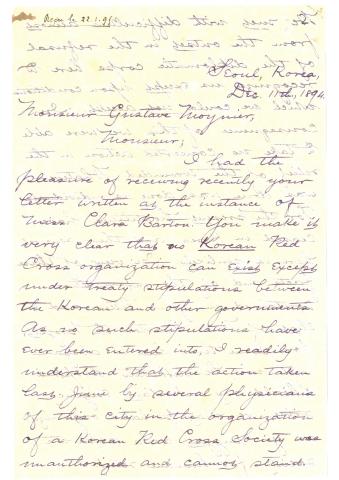 Seoul, Korea,
Dec. 11th, 1894.
Monsieur Gustave Moynier,
Monsieur;
I had the
pleasure of receiving recently your
letter written at the instance of
Miss Clara Barton. You make it
very clear that no Korean Red
Cross organization can exist except
under treaty stipulations between
the Korean and other governments.
As no such stipulations have
ever been entered into, I readily
understand that the action taken
last June by several physicians
of this city in the organization
of a Korean Red Cross Society was
unauthorized and cannot stand.